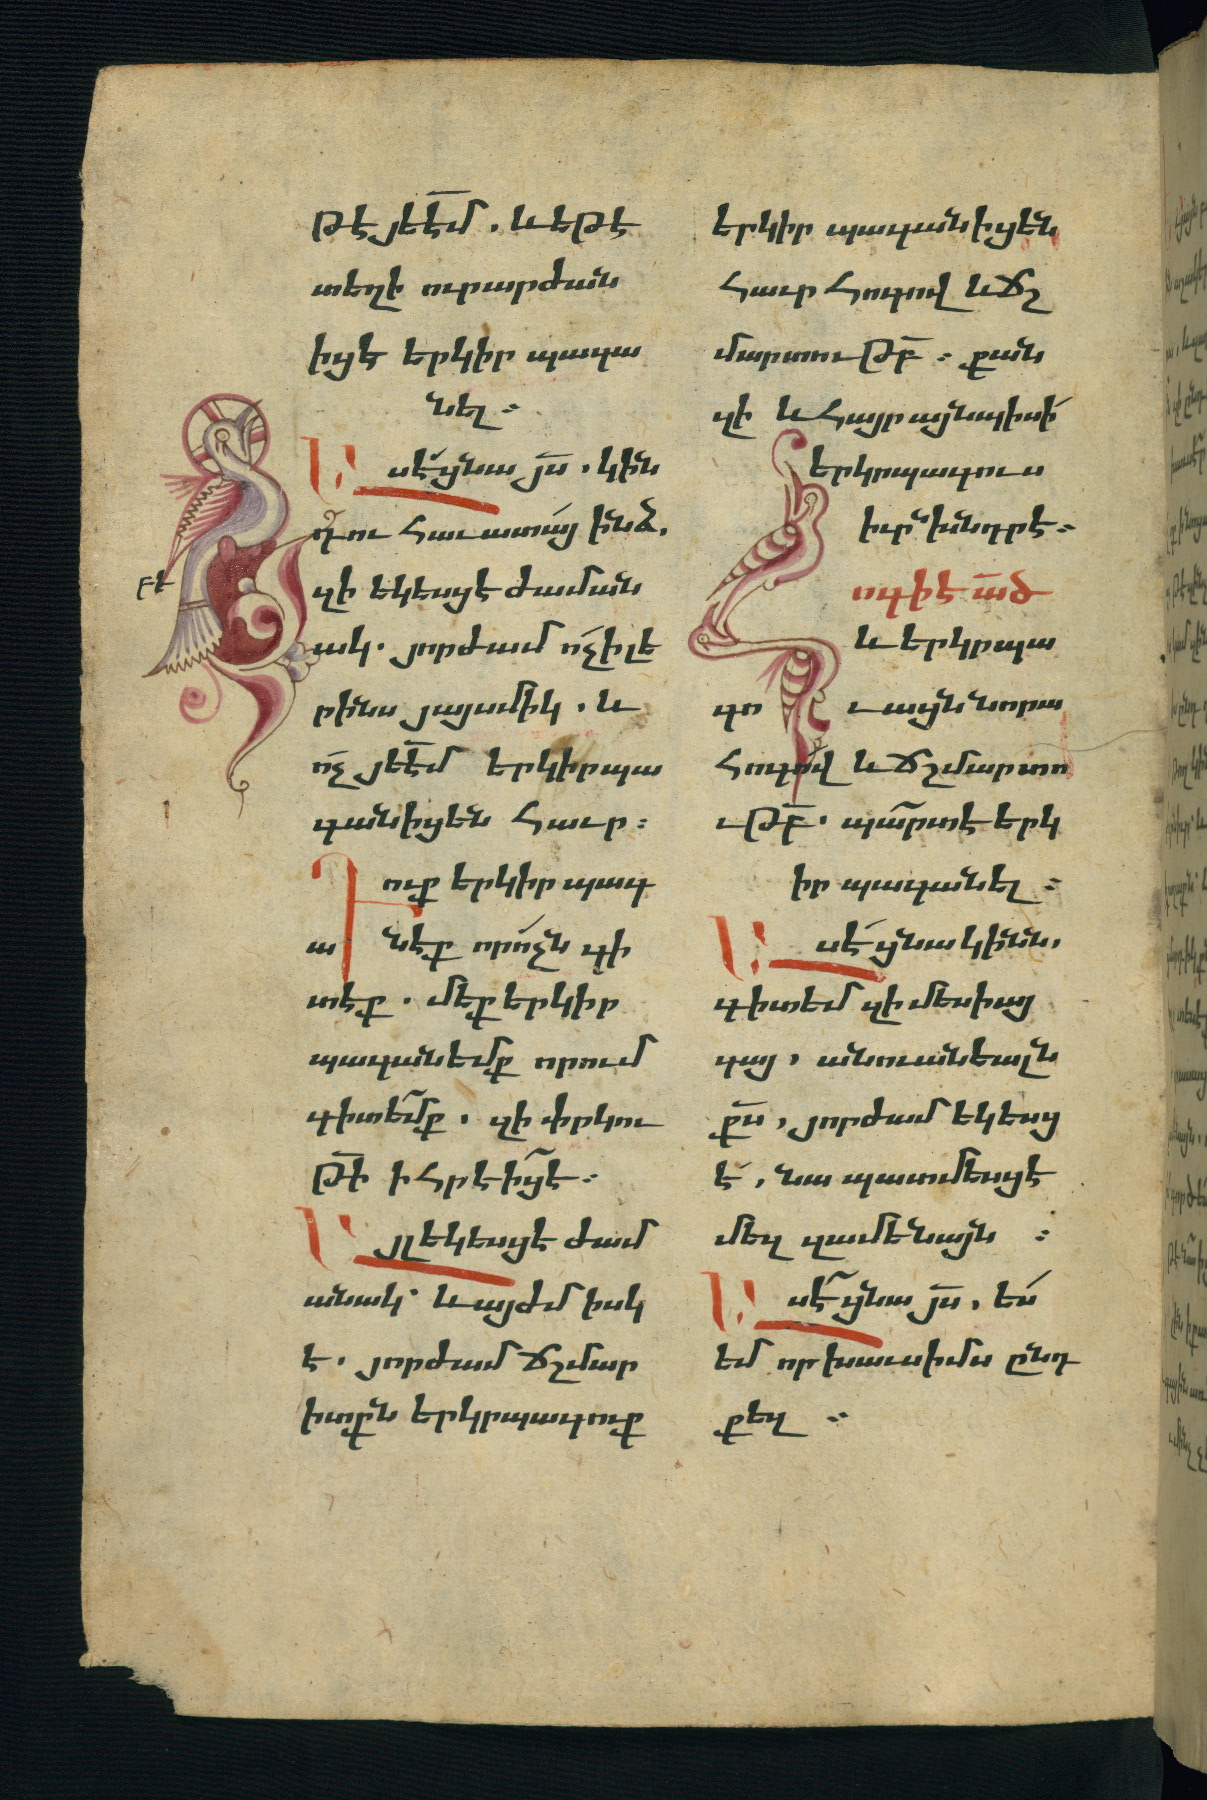 թէ յեէ՟մ . և եթէ
տեղի ուր արժան
իցէ երկիր պագա
նել ։
Ասէ ցնա յ՟ս . կին
դու հաւատայ ինձ .
զի եկեսցէ ժաման
ակ . յորժամ ոչ ի լե
րինս յայսմիկ . և
ոչ յեէ՟մ երկիր պա
գանիցեն հաւր ։
Դուք երկիր պագ
անէք որոչն գի
տէք . մեք երկիր
պագանեմք որում
գիտեմք . զի փրկու
թ՟ի ի հրէից է ։
Այլ եկեսցէ ժամ
անակ և այժմ իսկ
է . յորժամ ճշմար
իտքն երկրպագուք
երկիր պագանիցեն
հաւր հոգով և ճշ
մարտութ՟բ ։ քան
զի և հայր այնպիսի
երկրպագուս
իւր խնդրէ ։
Հոգի է ա՟ծ
և երկրպա
գուացն նորա
հոգով և ճշմարտո
ւթ՟բ . պարտ է երկ
իր պագանել ։
Ասէ ցնա կինն .
գիտեմ զի մեսիայ
գայ , անուանեալն
ք՟ս , յորժամ եկեսց
է , նա պատմեսցէ
մեզ զամենայն ։
Ասէ ցնա յ՟ս , ես
եմ որ խաւսիմս ընդ
քեզ ։